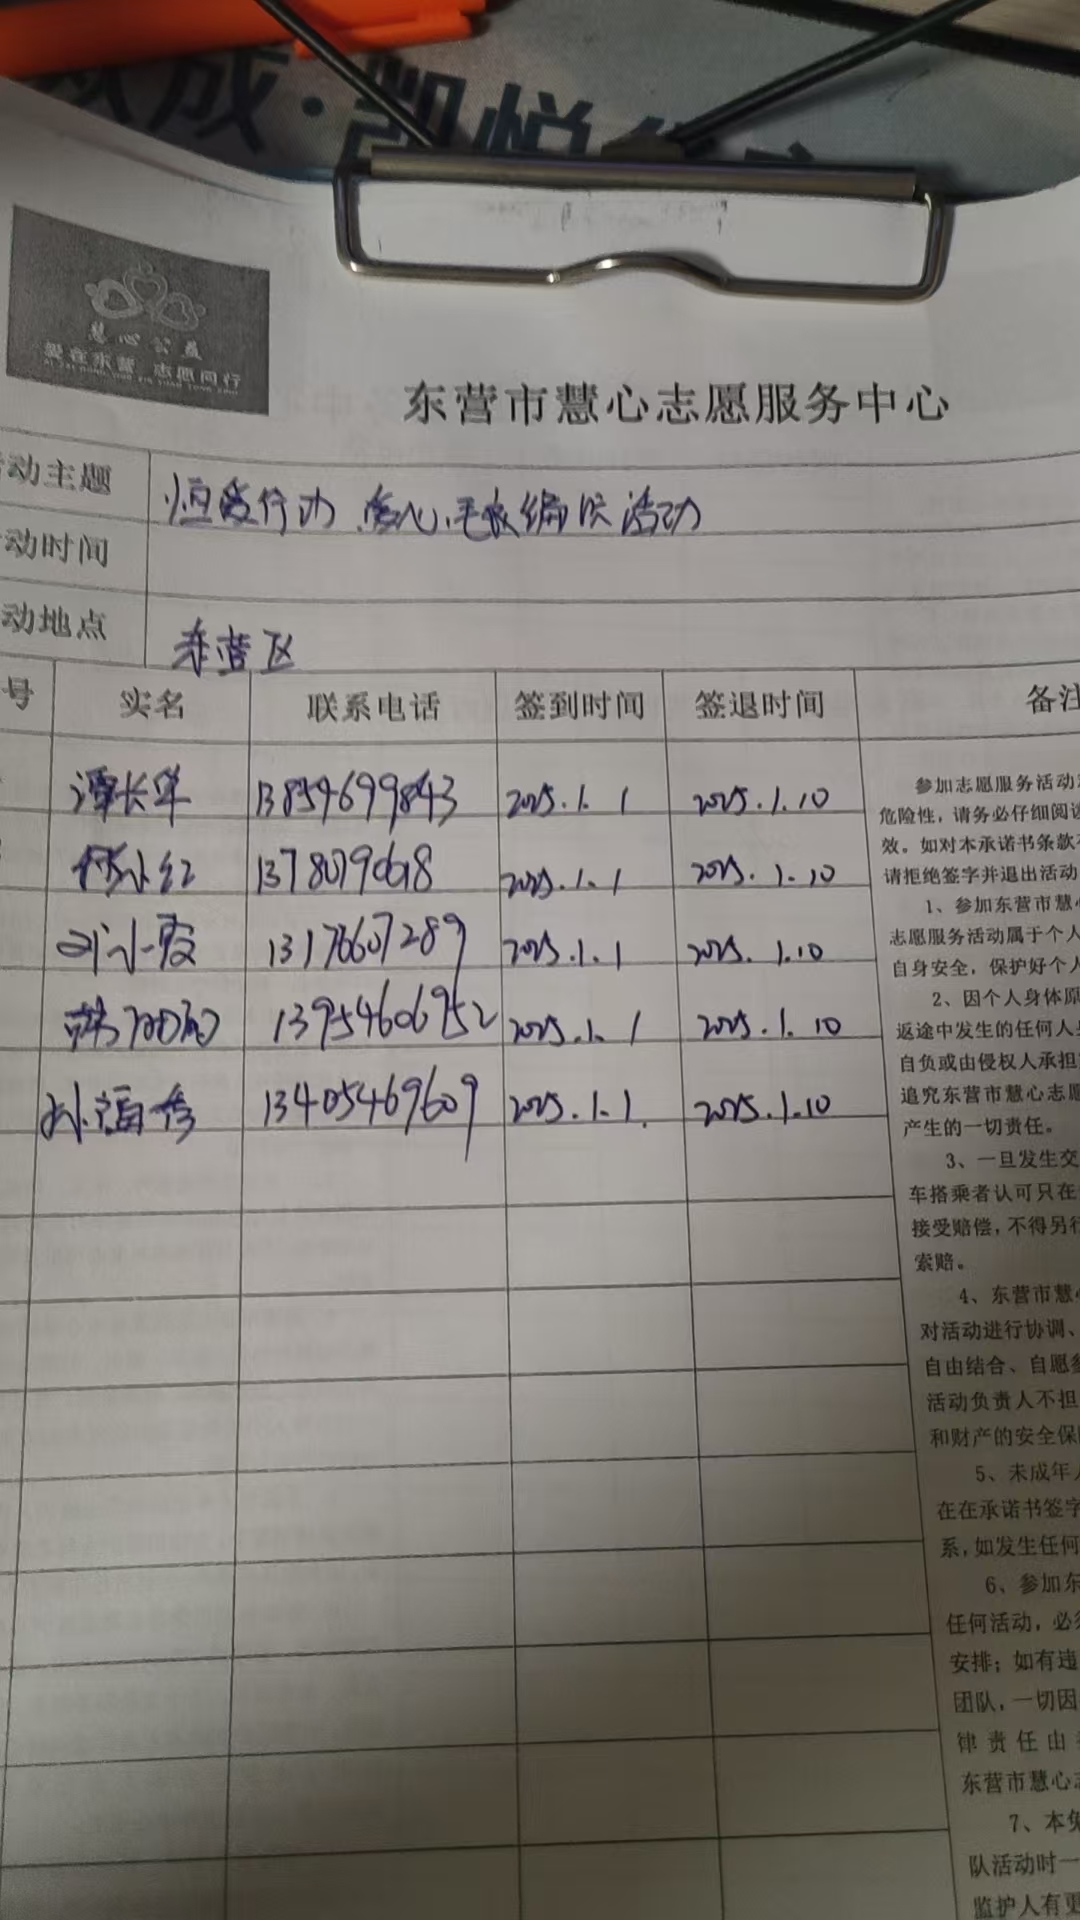 成·凯悦
慧心公益
爱在东营 志愿同行
东营市慧心志愿服务中心
动主题 恒爱行动 爱心毛衣编织活动
动时间
动地点 东营区
号 实名 联系电话 签到时间 签退时间 备注
谭长军 13854699843 2025.1.1 2025.1.10
小红 2025.1.1 2025.1.10
刘小霞 13176607289 2025.1.1 2025.1.10
13954606952 2025.1.1 2025.1.10
孙福秀 13405469609 2025.1.1. 2025.1.10
参加志愿服务活动
危险性，请务必仔细阅读
效。如对本承诺书条款
请拒绝签字并退出活动
1、参加东营市慧心
志愿服务活动属于个人
自身安全，保护好个人
2、因个人身体原
返途中发生的任何人
自负或由侵权人承担
追究东营市慧心志愿
产生的一切责任。
3、一旦发生交
车搭乘者认可只在
接受赔偿，不得另行
索赔。
4、东营市慧心
对活动进行协调、
自由结合、自愿参
活动负责人不担
和财产的安全保
5、未成年人
在在承诺书签字
系，如发生任何
6、参加东
任何活动，必须
安排；如有违
团队，一切因
律责任由
东营市慧心志
7、本免
队活动时一
监护人有更